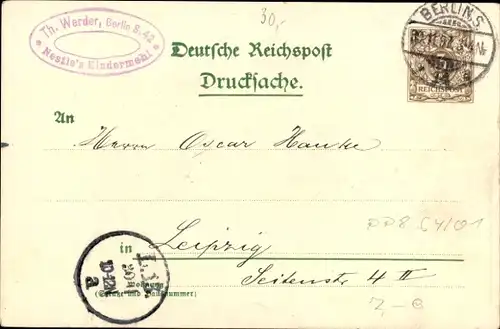 Th. Werder, Berlin S. 42
Nestle's Kindermehl
30,-
BERLIN S.
Deutsche Reichspost
Drucksache.
REICHSPOST
An
Herrn Oscar Hanke
in Leipzig
Wohnung
(Straße und Hausnummer)
Seitenstr 4 II
a